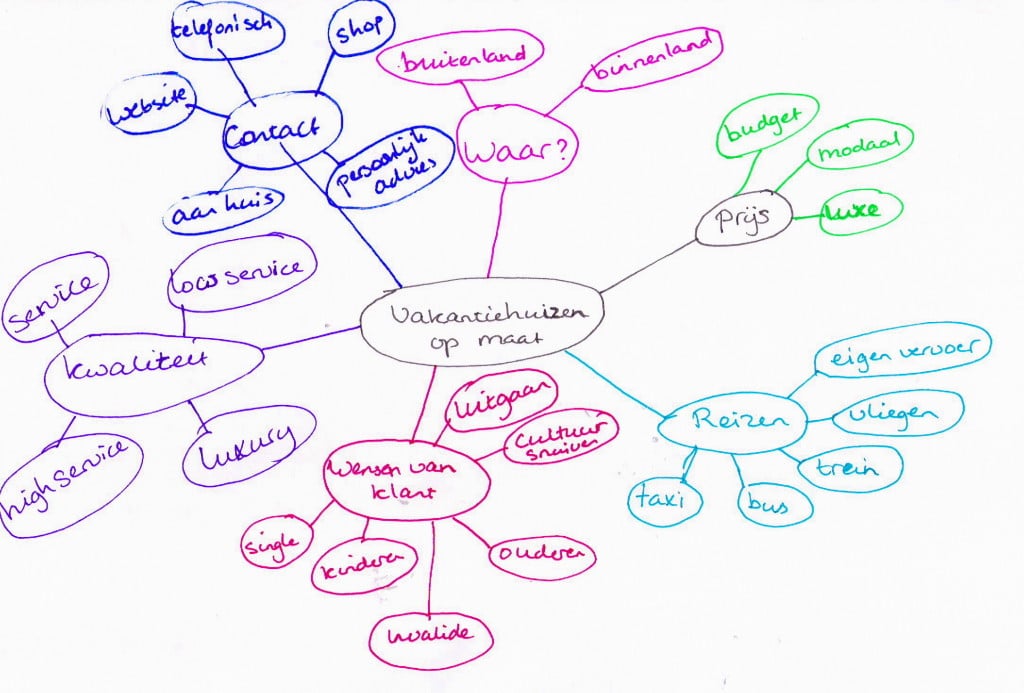 telefonisch
shop
website
Contact
persoonlijk
advies
aan huis
buitenland
binnenland
Waar?
budget
modaal
luxe
Prijs
Vakantiehuizen
op maat
service
low service
kwaliteit
high service
luxury
uitgaan
cultuur
snuiven
Wensen van
klant
single
kinderen
ouderen
invalide
Reizen
eigen vervoer
vliegen
trein
bus
taxi